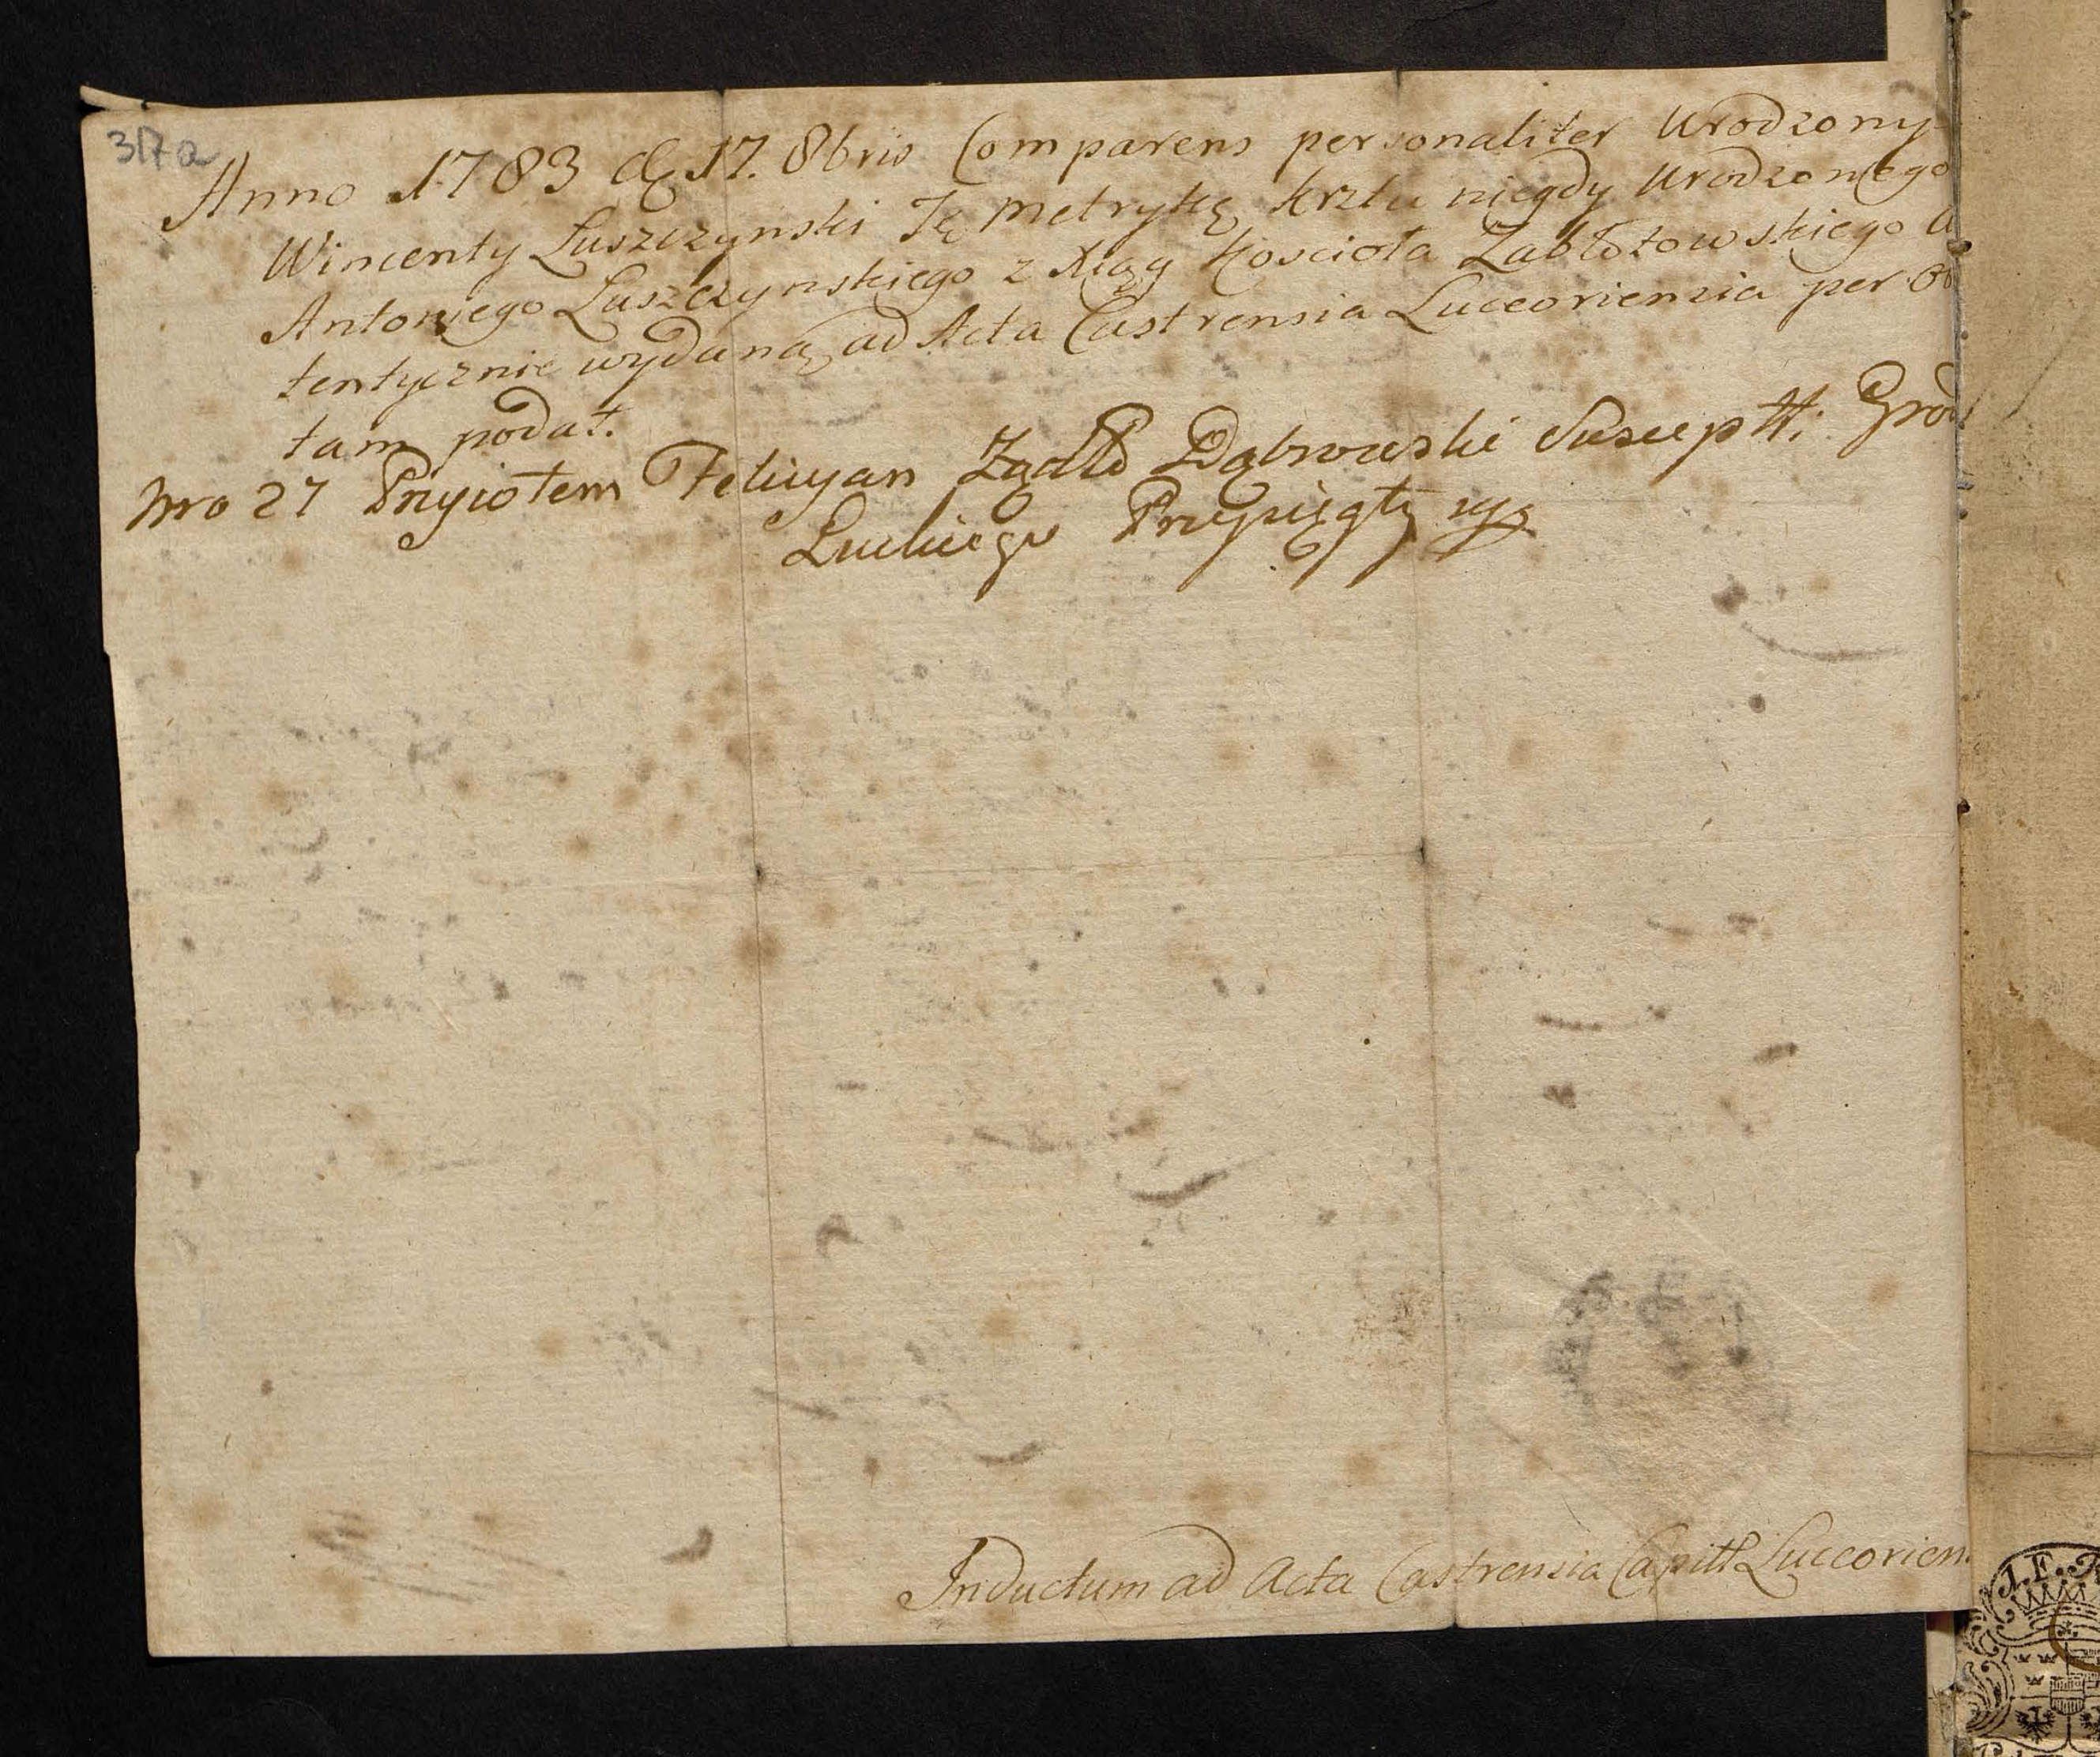 317a
Anno 1783 d 17. 8bris Comparens personaliter Urodzony
Wincenty Luszczynski Tę metrykę krztu niegdy Urodzonego
Antoniego Luszczynskiego z Xiąg Kościoła Zabłotowskiego a
tentycznie wydaną, ad Acta Castrensia Luceoriensia per ob
tam podał.
Nro 27 Przyiołem Felicyan Dąbrowski Susceptt: Grod
Łuckiego Przysięgły
Inductum ad Acta Castrensia Capitt Luceorien.
I.F.